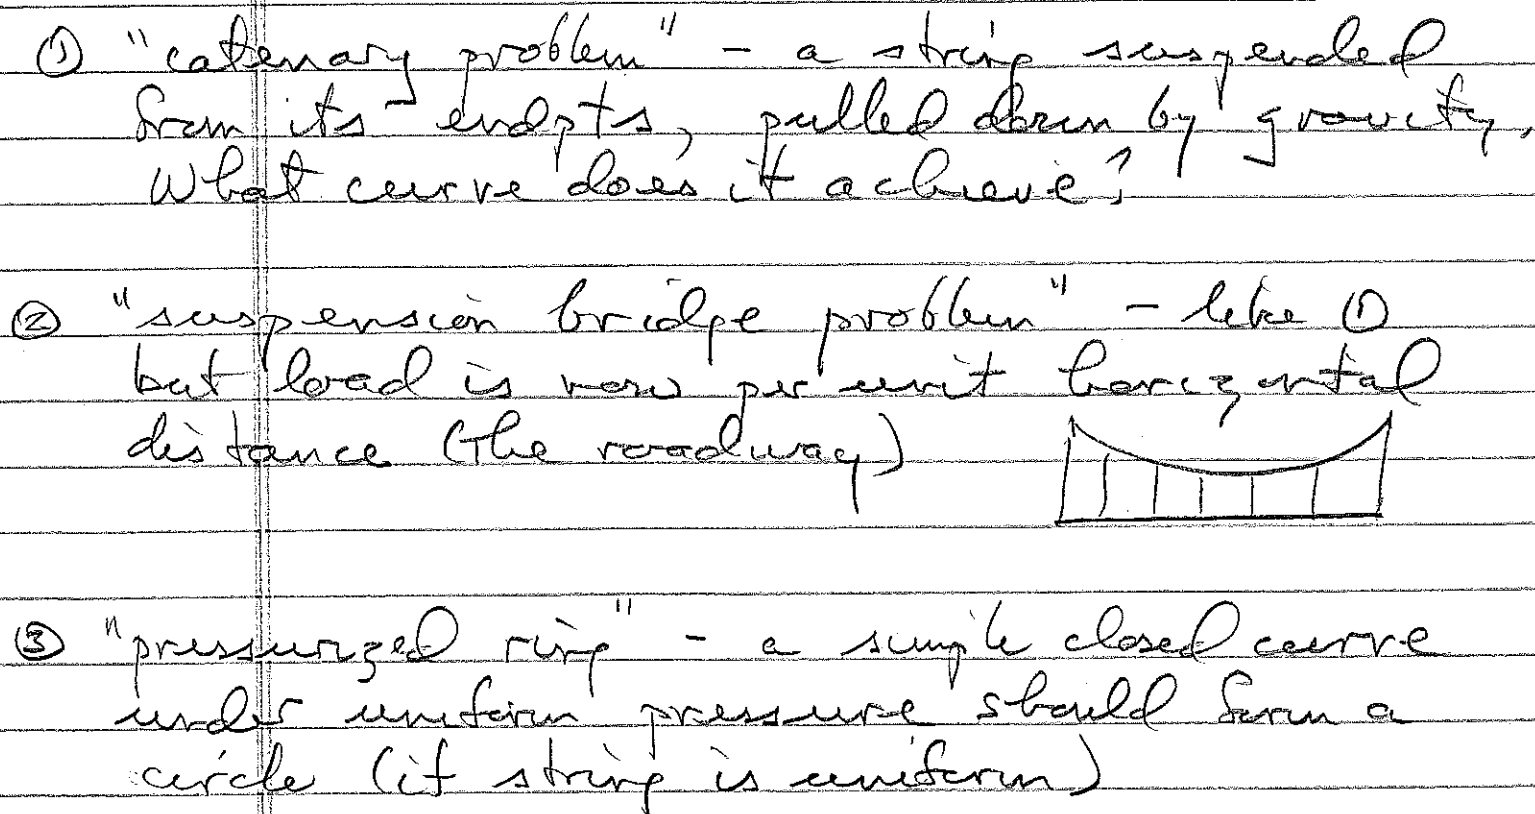 ① "catenary problem" - a string suspended
from its endpts, pulled down by gravity.
What curve does it achieve?
② "suspension bridge problem" - like ①
but load is now per unit horizontal
distance (the roadway)
③ "pressurized ring" - a simple closed curve
under uniform pressure should form a
circle (if string is uniform)